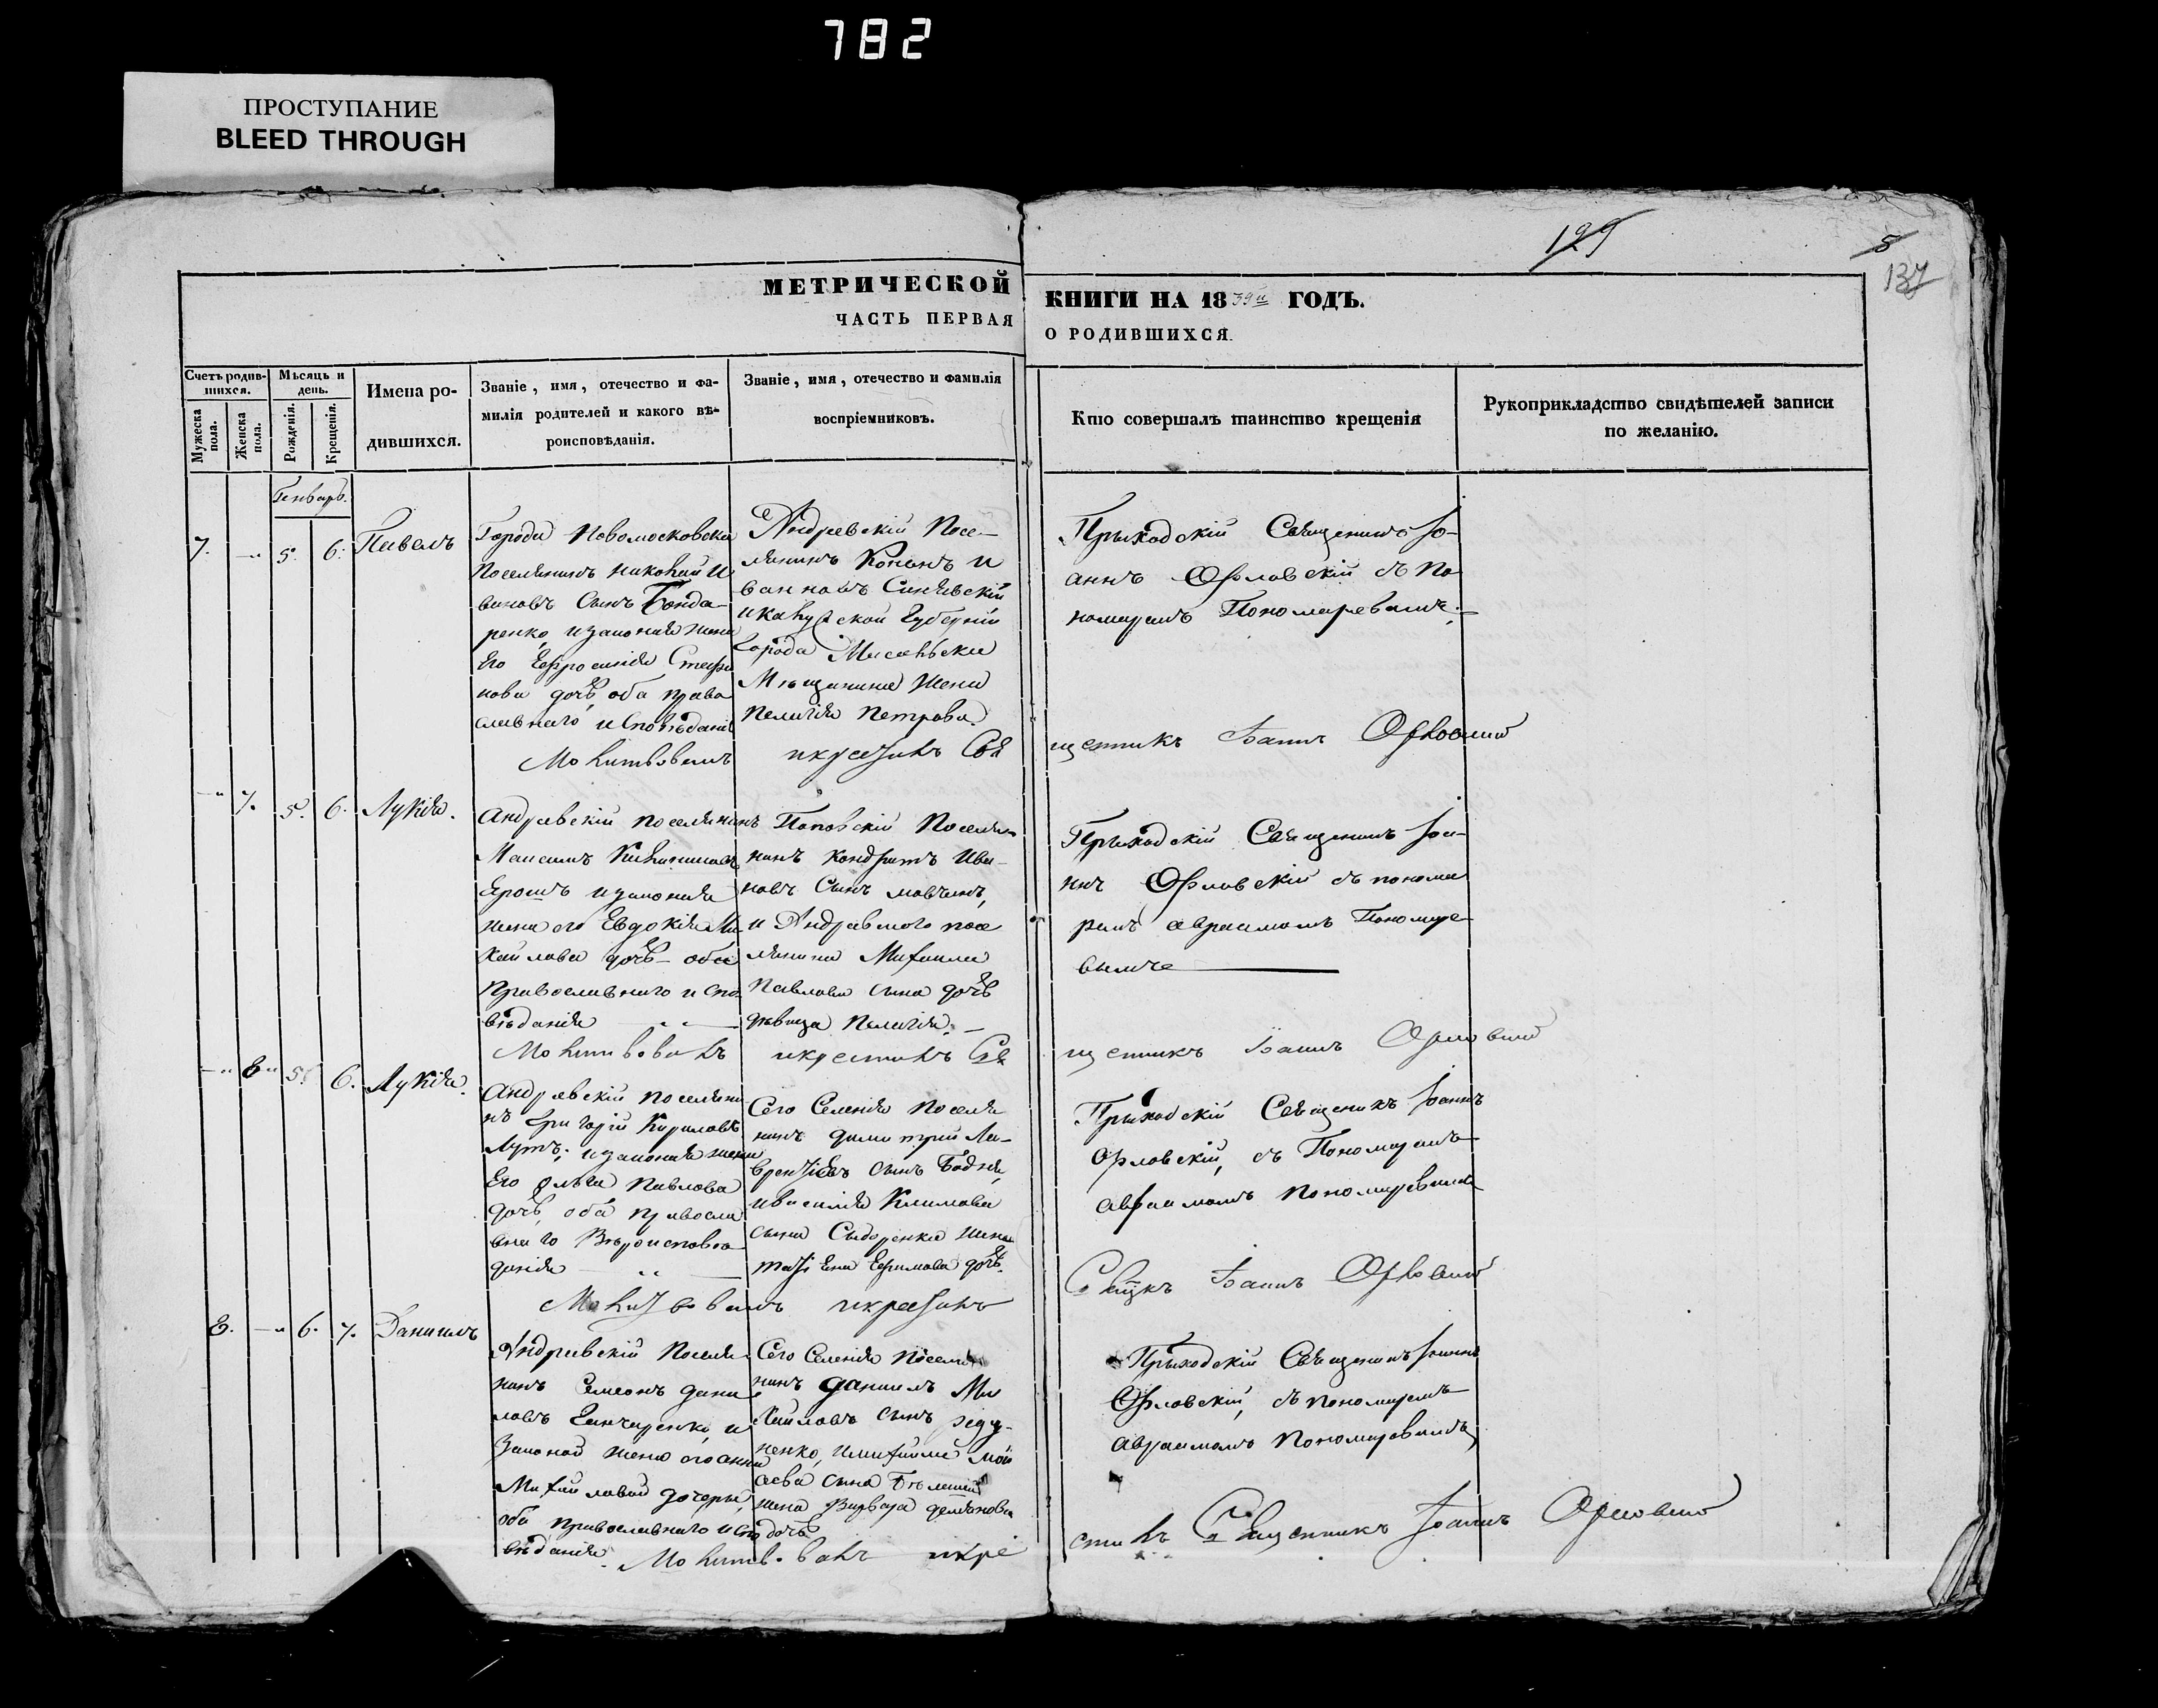 782
ПРОСТУПАНИЕ
BLEED THROUGH
129
5
137
МЕТРИЧЕСКОЙ КНИГИ НА 1839й ГОДЪ.
ЧАСТЬ ПЕРВАЯ О РОДИВШИХСЯ.
Счетъ родив-
шихся.
Мужеска пола.
Женска пола.
Мѣсяцъ и
день.
Рожденія.
Крещенія.
Имена ро-
дившихся.
Званіе, имя, отечество и фа-
милія родителей и какого вѣ-
роисповѣданія.
Званіе, имя, отечество и фамилія
воспріемниковъ.
Кто совершалъ таинство крещенія
Рукоприкладство свидѣтелей записи
по желанію.
Генварь.
7. 5. 6. Павелъ
Города Новомосковска
Поселянинъ Николай И
вановъ Сынъ Бонда-
ренко, и законная жена
Его Ефросинія Стефа
нова дочь, оба право
славнаго исповѣданія
Андреевскій Посе-
лянинъ Кононъ И
вановъ
Губерніи
Города
Мѣщанина Жена
Пелагія Петрова
Приходскій Священникъ Іо-
аннъ Орловскій съ По
номаремъ Пономаревымъ.
Молитвовалъ и крестилъ Свя
щенникъ Іоаннъ Орловскій
7. 5. 6. Лукія.
Андреевскій поселянинъ
Максимъ
Ярошъ и законная
жена его Евдокія Ми
хайлова дочь оба
Православнаго испо
вѣданія
Поповскій Поселя
нинъ Кондратъ Ива-
новъ Сынъ
и Андреевскаго посе
лянина Михаила
Павлова сына дочь
дѣвица Пелагія.
Приходскій Священникъ Іоа-
ннъ Орловскій съ понома
ремъ Авраамомъ Пономаре-
вымъ
Молитвовалъ и крестилъ Свя
щенникъ Іоаннъ Орловскій
8 5. 6. Лукія.
Андреевскій поселяни
нъ Григорій Кириловъ
и законная жена
Его Павлова
дочь, оба правосла
внаго Вѣроисповѣ
данія
Сего Селенія поселя
нинъ Димитрій Ла-
врентіевъ сынъ
и Василія Климова
сына Сидоренка жена
Ефимова дочь.
Приходскій Священникъ Іоаннъ
Орловскій, съ Пономаремъ
Авраамомъ Пономаревымъ
Молитвовалъ и крестилъ
Іоаннъ Орловскій
8. 6. 7. Даниилъ
Андреевскій Поселя
нинъ Симеонъ Дани
ловъ и
законной жены его Анны
Михайловой дочери,
оба православнаго испо
вѣданія.
Сего Селенія поселя
нинъ Даниилъ Ми
хайловъ сынъ
сына
жена Варвара Демянова
дочь
Приходскій Священникъ Іоаннъ
Орловскій, съ пономаремъ
Авраамомъ Пономаревымъ
Молитвовалъ и кре
стилъ Священникъ Іоаннъ Орловскій